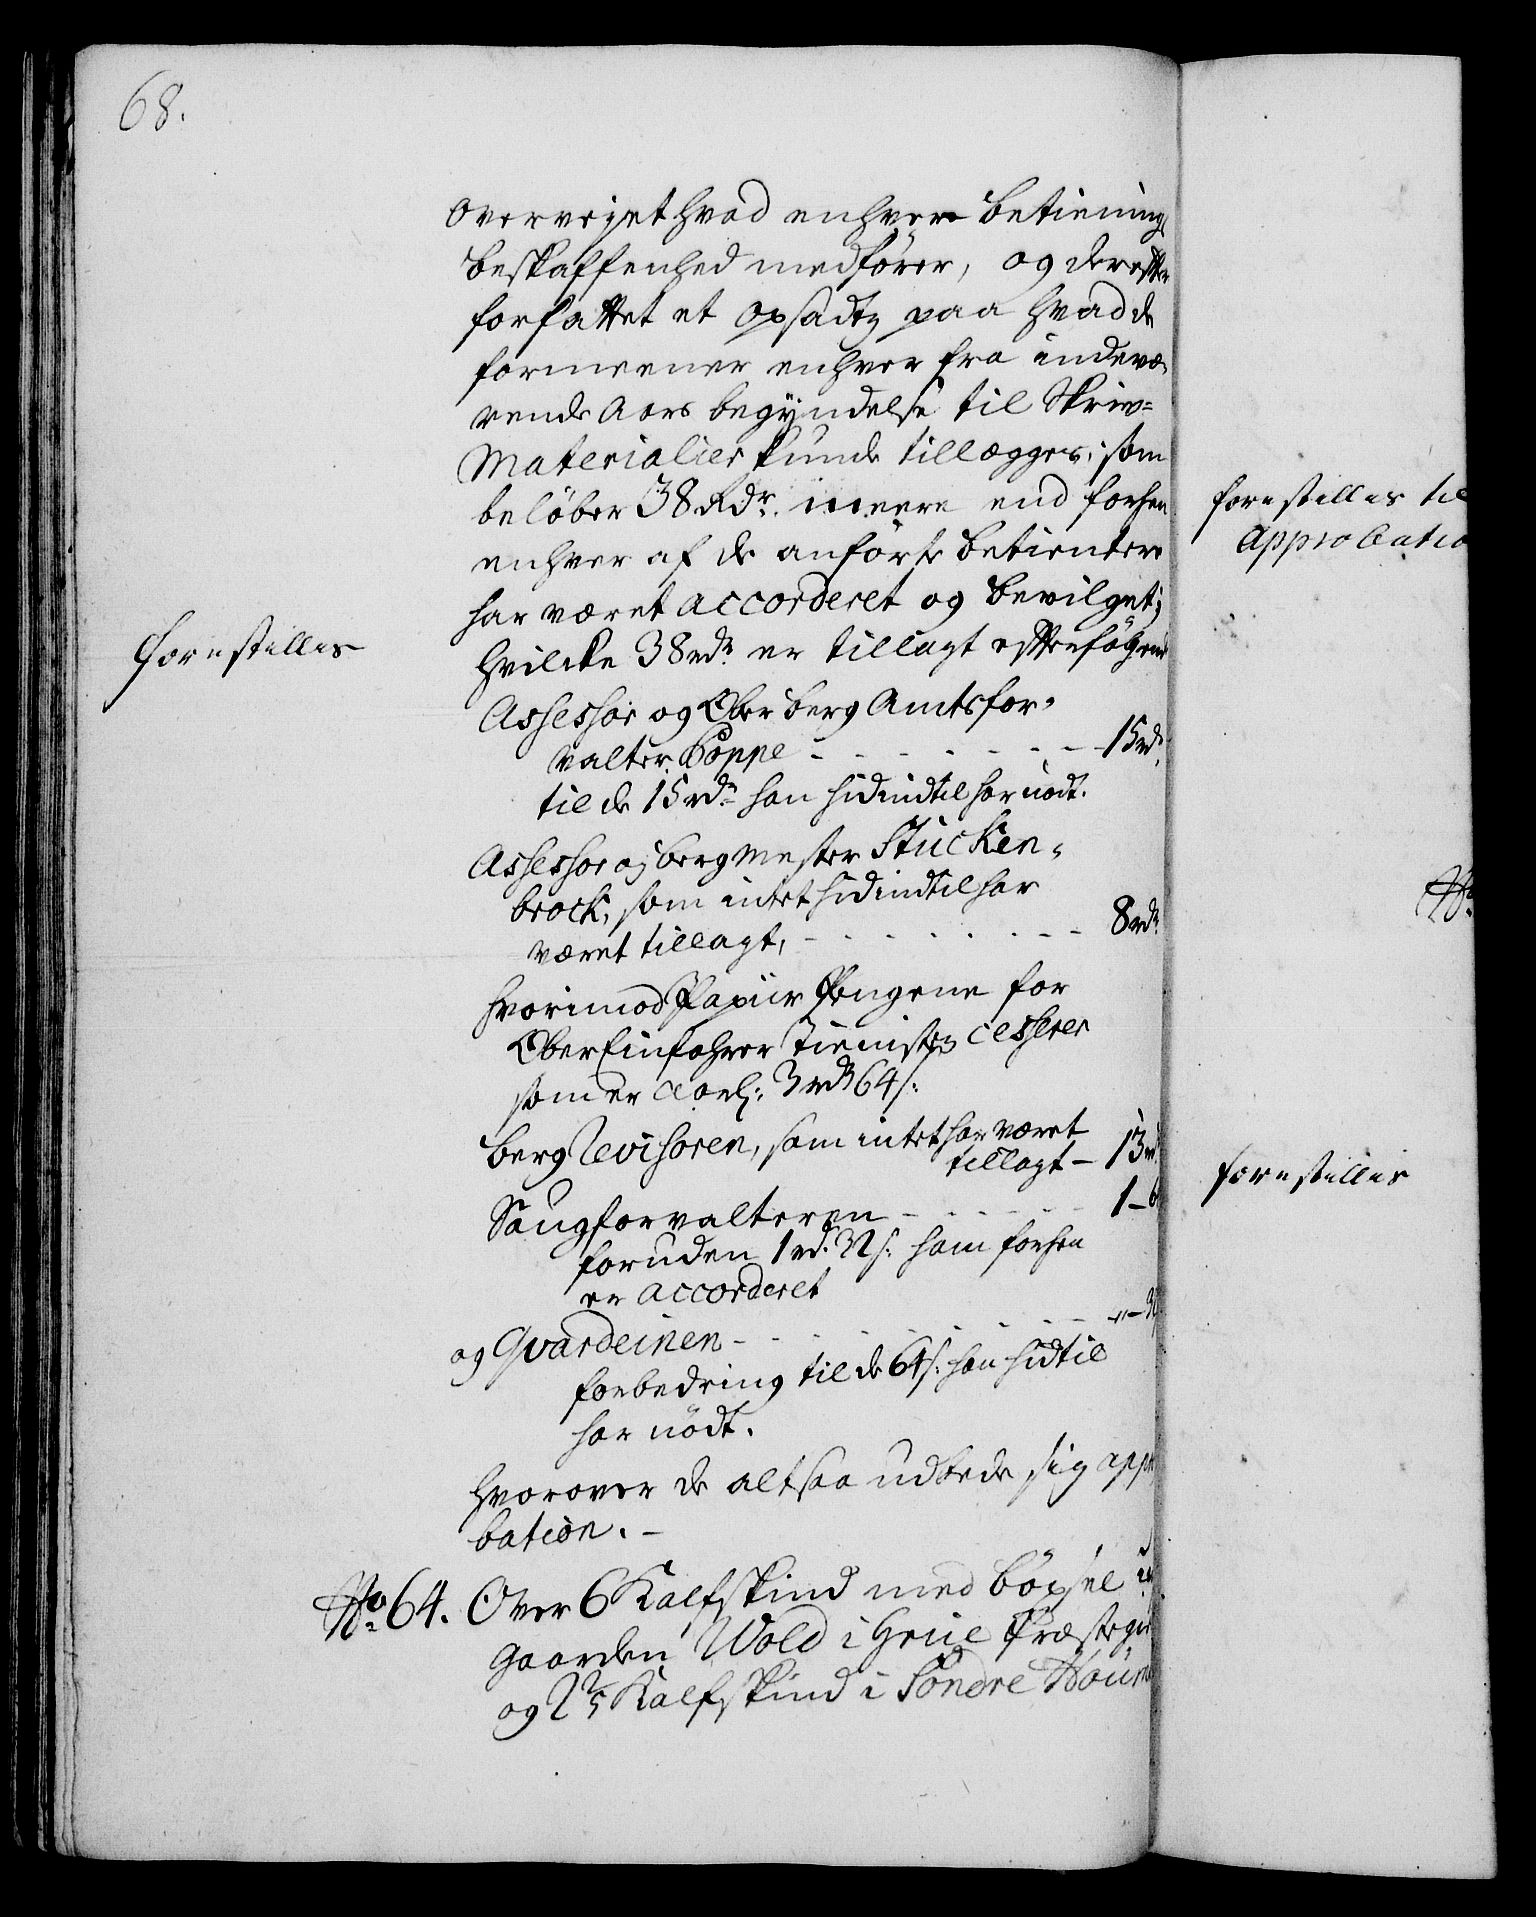 68.
overvejet hvad enhver betiening
beskaffenhed medfører, og derefter
forfattet et opsadtz paa hvad de
formeener enhver fra indevæ-
rende Aars begÿndelse til Skriv=
Materialier kunde tillægges; som
beløber 38 Rdr. meere end forhen
enhver af de anførte betientere
har været accorderet og bevilget;
hvilcke 38 rdr er tillagt efterfølgende
forestilles
Assessor og Ober berg Amtsfor-
valter Poppe - - - - - - - 15 rdr.
til de 15 rdr han hidindtil har nÿdt.
Assessor og berg Mester Stucken-
brock, som intet hidindtil har
været tillagt, - - - - - - - 8 rdr.
hvorimod Papiir Pengene for
Ober Einfahrer Tienisten cesserer
som er aarl: 3 rdr 64 s:
berg Revisoren, som intet har været
tillagt - 13 rd
Sougforvalteren - - - - - 1 - 6
foruden 1 rd. 32 s: ham forhen
er accorderet
og Qvardeinen - - - - - - - " - 32
forbedring til de 64 s: han hidtil
har nødt.
hvorover de altsaa udbede sig appro
bation. -
No 64. Over 6 Kalfskind med bøxsel i
gaarden Wold i Grue Præstegie
og 2 2/5 Kalfskind i Søndre
forestilles til
Approbatio
No
forestilles